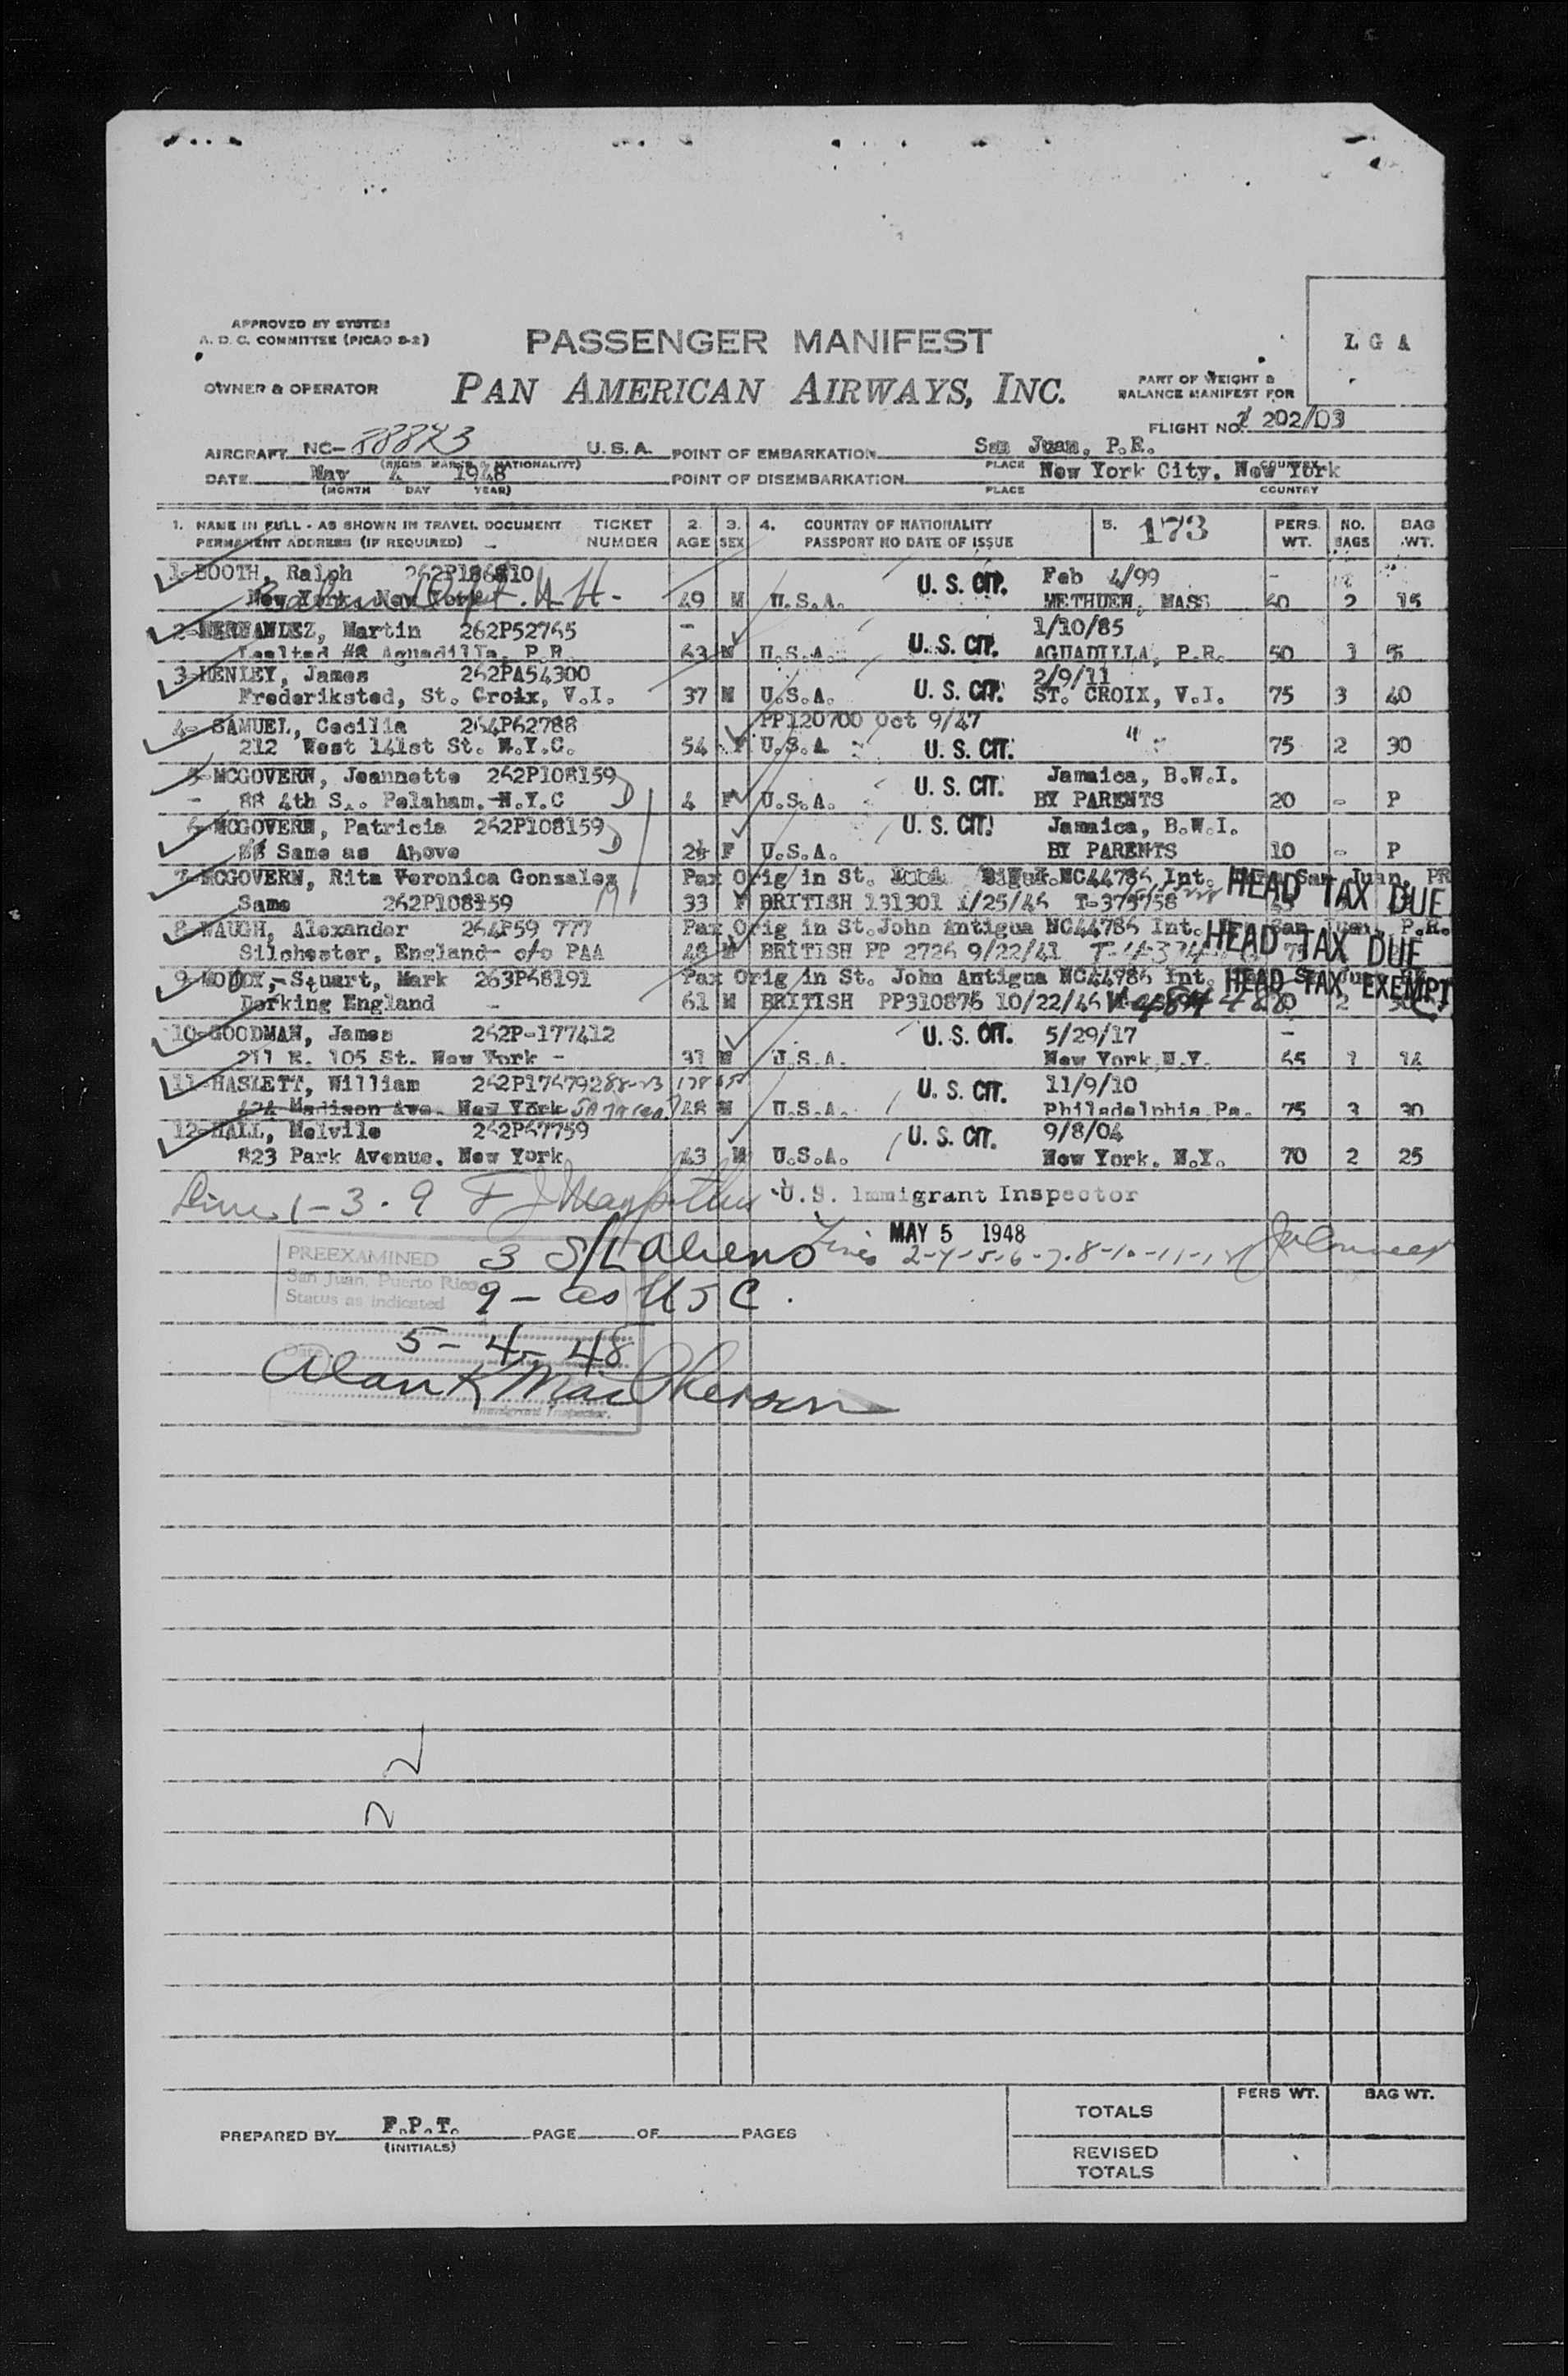 APPROVED BY SYSTEM
A. D. C. COMMITTEE (PICAO 8-2)
PASSENGER MANIFEST
L G A
OWNER & OPERATOR
PAN AMERICAN AIRWAYS, INC.
PART OF WEIGHT &
BALANCE MANIFEST FOR
FLIGHT NO. 202/03
AIRCRAFT NC- U. S. A. POINT OF EMBARKATION San Juan, P.R.
(REGIS. MARKS & NATIONALITY) PLACE COUNTRY
DATE May 4 1948 POINT OF DISEMBARKATION New York City. New York
(MONTH DAY YEAR) PLACE COUNTRY
1. NAME IN FULL - AS SHOWN IN TRAVEL DOCUMENT TICKET 2. 3. 4. COUNTRY OF NATIONALITY 5. 173 PERS. NO. BAG
PERMANENT ADDRESS (IF REQUIRED) NUMBER AGE SEX PASSPORT NO DATE OF ISSUE WT. BAGS WT.
1-BOOTH, Ralph U. S. CIT. Feb 4/99
New York. New York N.H. 49 M U.S.A. METHUEN, MASS 2 15
2-HERNANDEZ, Martin 262P52765 U. S. CIT. 1/10/85
Aguadilla, P.R. 63 M U.S.A. AGUADILLA, P.R. 50
3-HENLEY, James 262PA54300 2/9/11
Frederiksted, St. Croix, V.I. 37 M U.S.A. U. S. CIT. ST. CROIX, V.I. 75 3 40
4- SAMUEL, Cecilia 264P62788 PP120700 Oct 9/47
212 West 141st St. N.Y.C. 54 F U.S.A U. S. CIT. " 75 2 30
5-MCGOVERN, Jeannette 262P108159 U. S. CIT. Jamaica, B.W.I.
88 4th S.. Pelaham. N.Y.C D 4 F U.S.A. BY PARENTS 20 - P
6-MCGOVERN, Patricia 262P108159 U. S. CIT. Jamaica, B.W.I.
Same as Above D 2½ F U.S.A. BY PARENTS 10 - P
7-MCGOVERN, Rita Veronica Gonsalez Pax Orig in St. NC44786 Int. San Juan, PR
Same 262P108159 M 33 F BRITISH 131301 1/25/46 T-375758 HEAD TAX DUE
8-WAUGH, Alexander 264P59 777 Pax Orig in St.John Antigua NC44786 Int. San Juan, P.R.
Silchester, England- c/o PAA 48 M BRITISH PP 2726 9/22/41 HEAD TAX DUE
9-MOODY,-Stuart, Mark 263P68191 Pax Orig in St. John Antigua NC44786 Int. HEAD TAX EXEMPT
Dorking England 61 M BRITISH PP310876 10/22/46 2
10-GOODMAN, James 262P-177412 U. S. CIT. 5/29/17
211 E. 105 St. New York - 31 M U.S.A. New York,N.Y. 65 1 14
11-HASLETT, William U. S. CIT. 11/9/10
424 Madison Ave. New York M U.S.A. Philadelphia Pa. 75 3 30
12-HALL, Melvile 262P67759 U. S. CIT. 9/8/04
823 Park Avenue. New York 43 M U.S.A. New York. N.Y. 70 2 25
Lines 1-3-9 U.S. Immigrant Inspector
MAY 5 1948
3 S/L Aliens Lines 2-4-5-6-7-8-10-11-12
PREEXAMINED
San Juan, Puerto Rico
Status as indicated
9 - as USC.
Date 5-4-48
Alan K MacPherson
Immigrant Inspector.
PREPARED BY F.P.T. PAGE OF PAGES
(INITIALS)
PERS WT. BAG WT.
TOTALS
REVISED
TOTALS